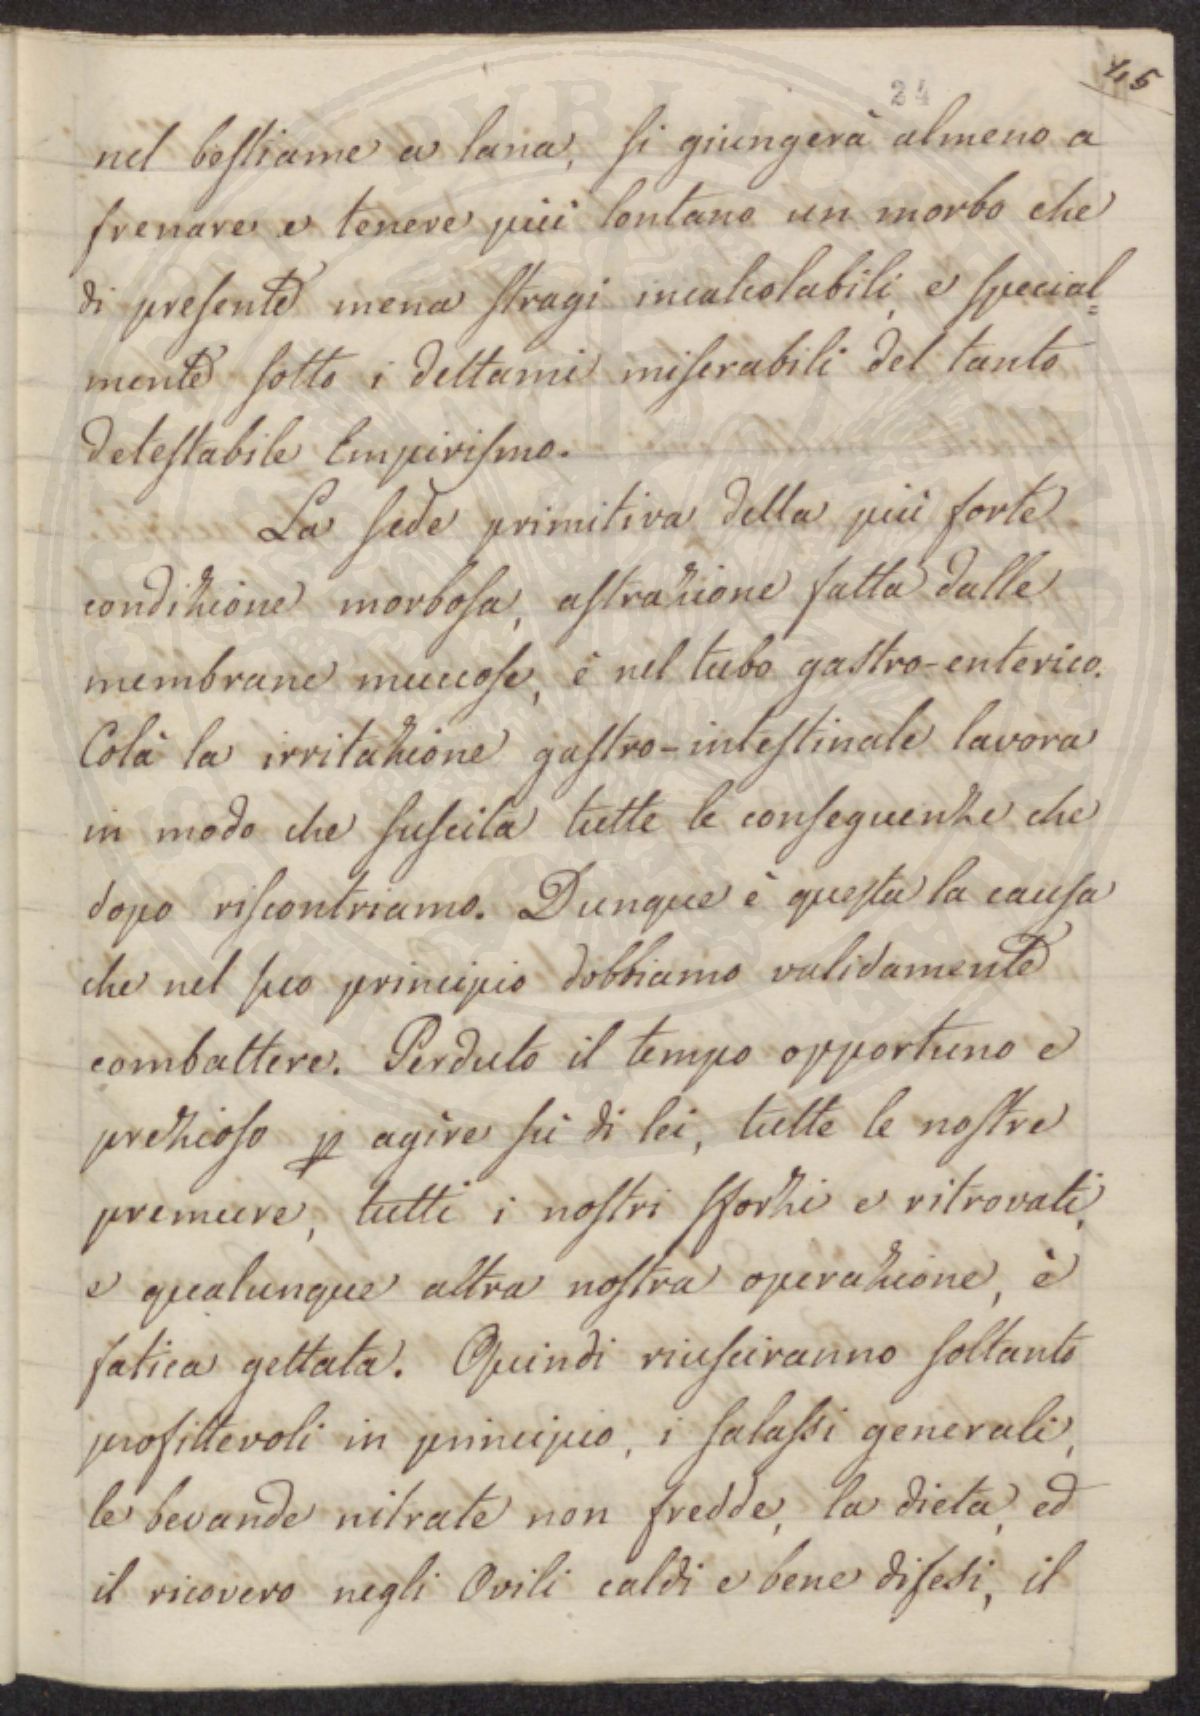 24
45
nel bestiame a lana, si giungerà almeno a
frenare e tenere più lontano un morbo che
di presente mena stragi incalcolabili, e special=
mente sotto i dettami miserabili del tanto
detestabile Empirismo.
La sede primitiva della più forte
condizione morbosa, astrazione fatta dalle
membrane muccose, è nel tubo gastro-enterico.
Colà la irritazione gastro-intestinale lavora
in modo che suscita tutte le conseguenze che
dopo riscontriamo. Dunque è questa la causa
che nel suo principio dobbiamo validamente
combattere. Perduto il tempo opportuno e
prezioso p agire sù di lei, tutte le nostre
premure, tutti i nostri sforzi e ritrovati,
e qualunque altra nostra operazione, è
fatica gettata. Quindi riusciranno soltanto
profittevoli in principio, i salassi generali,
le bevande nitrate non fredde, la dieta, ed
il ricovero negli Ovili caldi e bene difesi, il